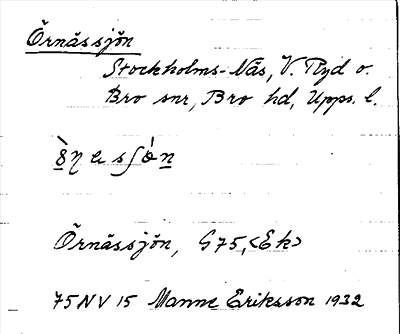 Örnässjön
Stockholms-Näs, V. Ryd o.
Bro snr, Bro hd, Upps. l.
Örnässjön, G75, <Ek>
75 NV 15 Manne Eriksson 1932